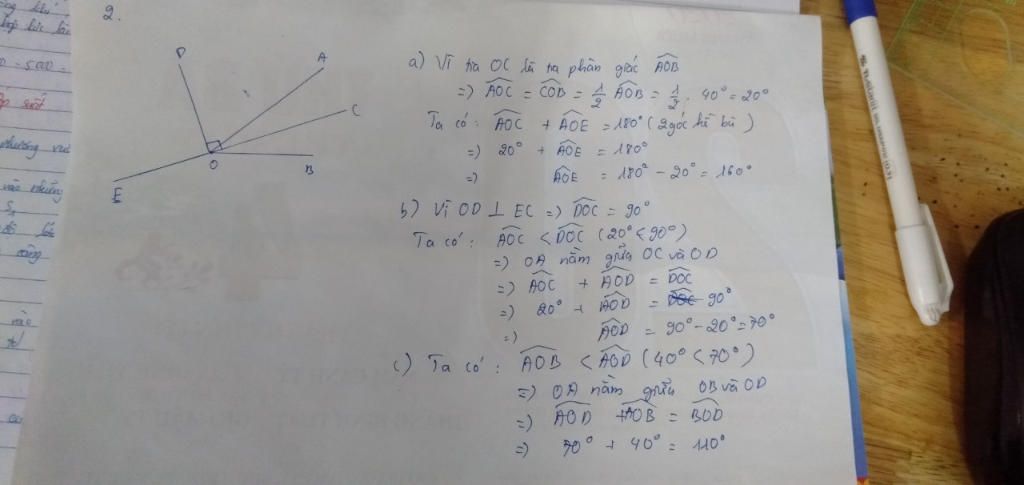 2.
D
A
C
O
B
E
a) Vì tia OC là tia phân giác \widehat{AOB}
=) \widehat{AOC} = \widehat{COB} = \frac{1}{2} \widehat{AOB} = \frac{1}{2}. 40° = 20°
Ta có: \widehat{AOC} + \widehat{AOE} = 180° (2 góc kề bù)
=) 20° + \widehat{AOE} = 180°
=) \widehat{AOE} = 180° - 20° = 160°
b) Vì OD ⊥ EC =) \widehat{DOC} = 90°
Ta có: \widehat{AOC} < \widehat{DOC} (20° < 90°)
=) OA nằm giữa OC và OD
=) \widehat{AOC} + \widehat{AOD} = \widehat{DOC}
=) 20° + \widehat{AOD} = 90°
=) \widehat{AOD} = 90° - 20° = 70°
c) Ta có: \widehat{AOB} < \widehat{AOD} (40° < 70°)
=) OA nằm giữa OB và OD
=) \widehat{AOD} + \widehat{AOB} = \widehat{BOD}
=) 70° + 40° = 110°